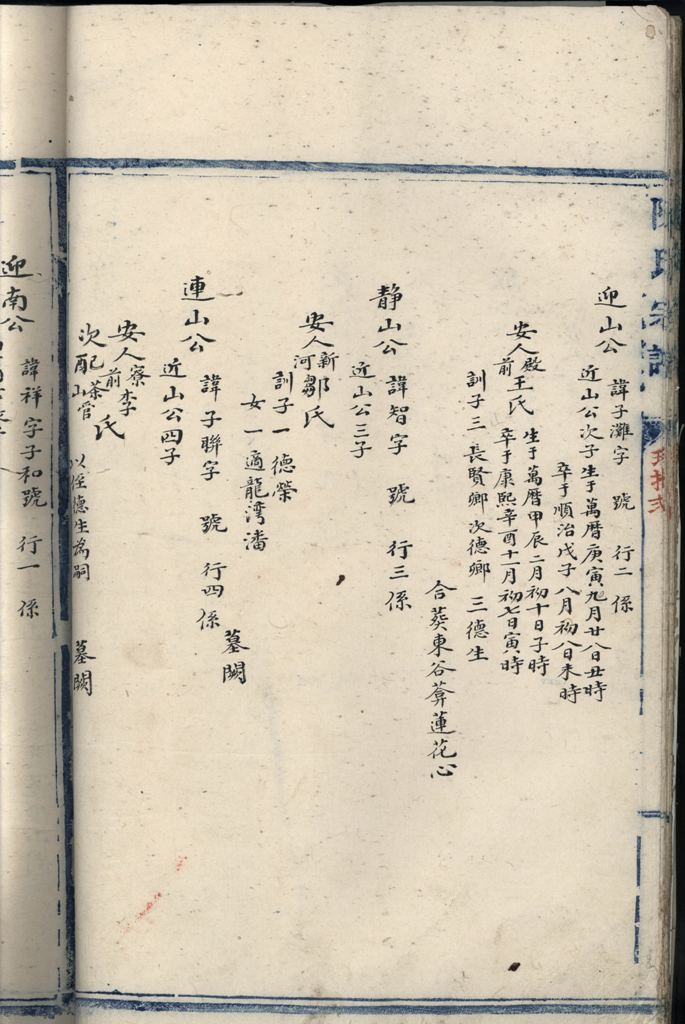 迎山公 諱子灘字 號 行二係
近山公次子生于萬曆庚寅九月廿八日丑時
卒于順治戊子八月初八日未時
安人殿前王氏 生于萬曆甲辰二月初十日子時
卒于康熙辛酉十一月初七日寅時
訓子三 長賢卿次德卿 三德生
合葬東谷葬蓮花心
静山公 諱智字 號 行三係
近山公三子
安人新河鄒氏
訓子一德榮
女一適龍湾潘
墓闕
連山公 諱子聯字 號 行四係
近山公四子
安人寮前李氏
次配茶山管氏 以侄德生為嗣 墓闕
迎南公 諱祥字子和號 行一係